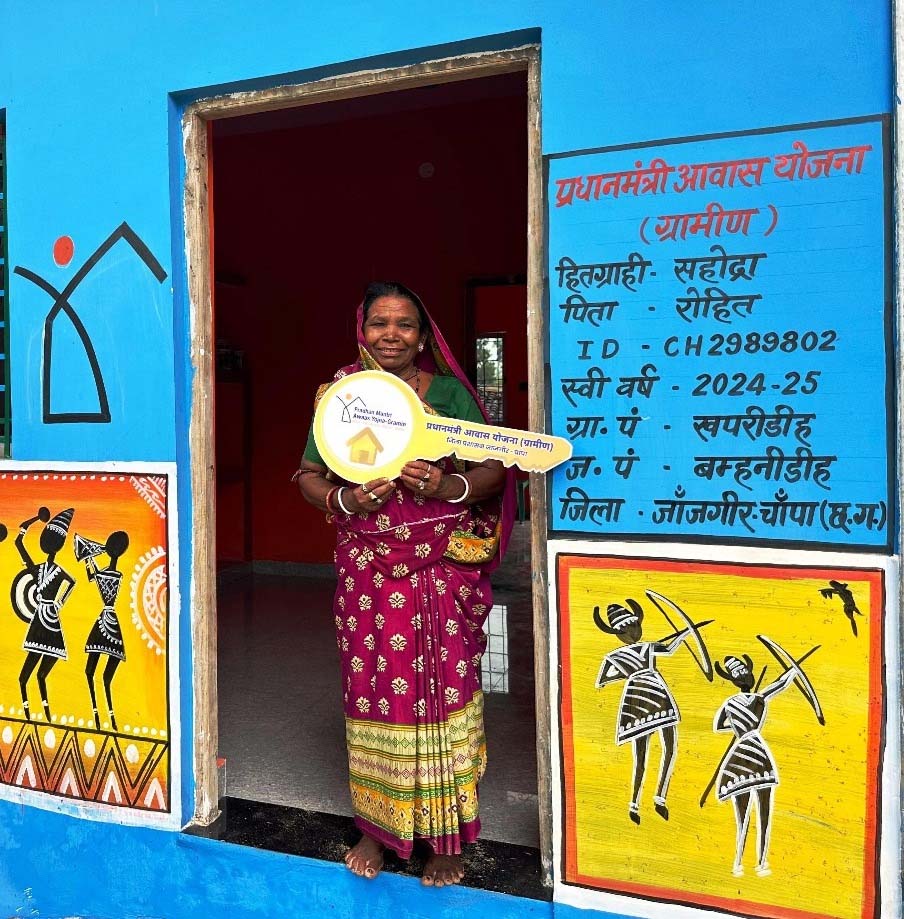 प्रधानमंत्री आवास योजना
(ग्रामीण)
हितग्राही - सहोद्रा
पिता - रोहित
ID - CH2989802
स्वी वर्ष - 2024-25
ग्रा. पं - खपरीडीह
ज. पं - बम्हनीडीह
जिला - जाँजगीर-चाँपा (छ.ग.)
Pradhan Mantri
Awaas Yojna-Gramin
प्रधानमंत्री आवास योजना (ग्रामीण)
जिला प्रशासन जांजगीर - चांपा